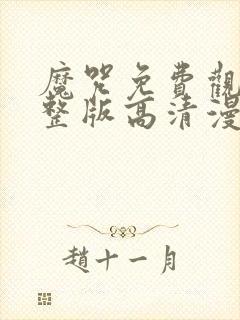 魔咒免費觀
整版高清漫
趙十一月